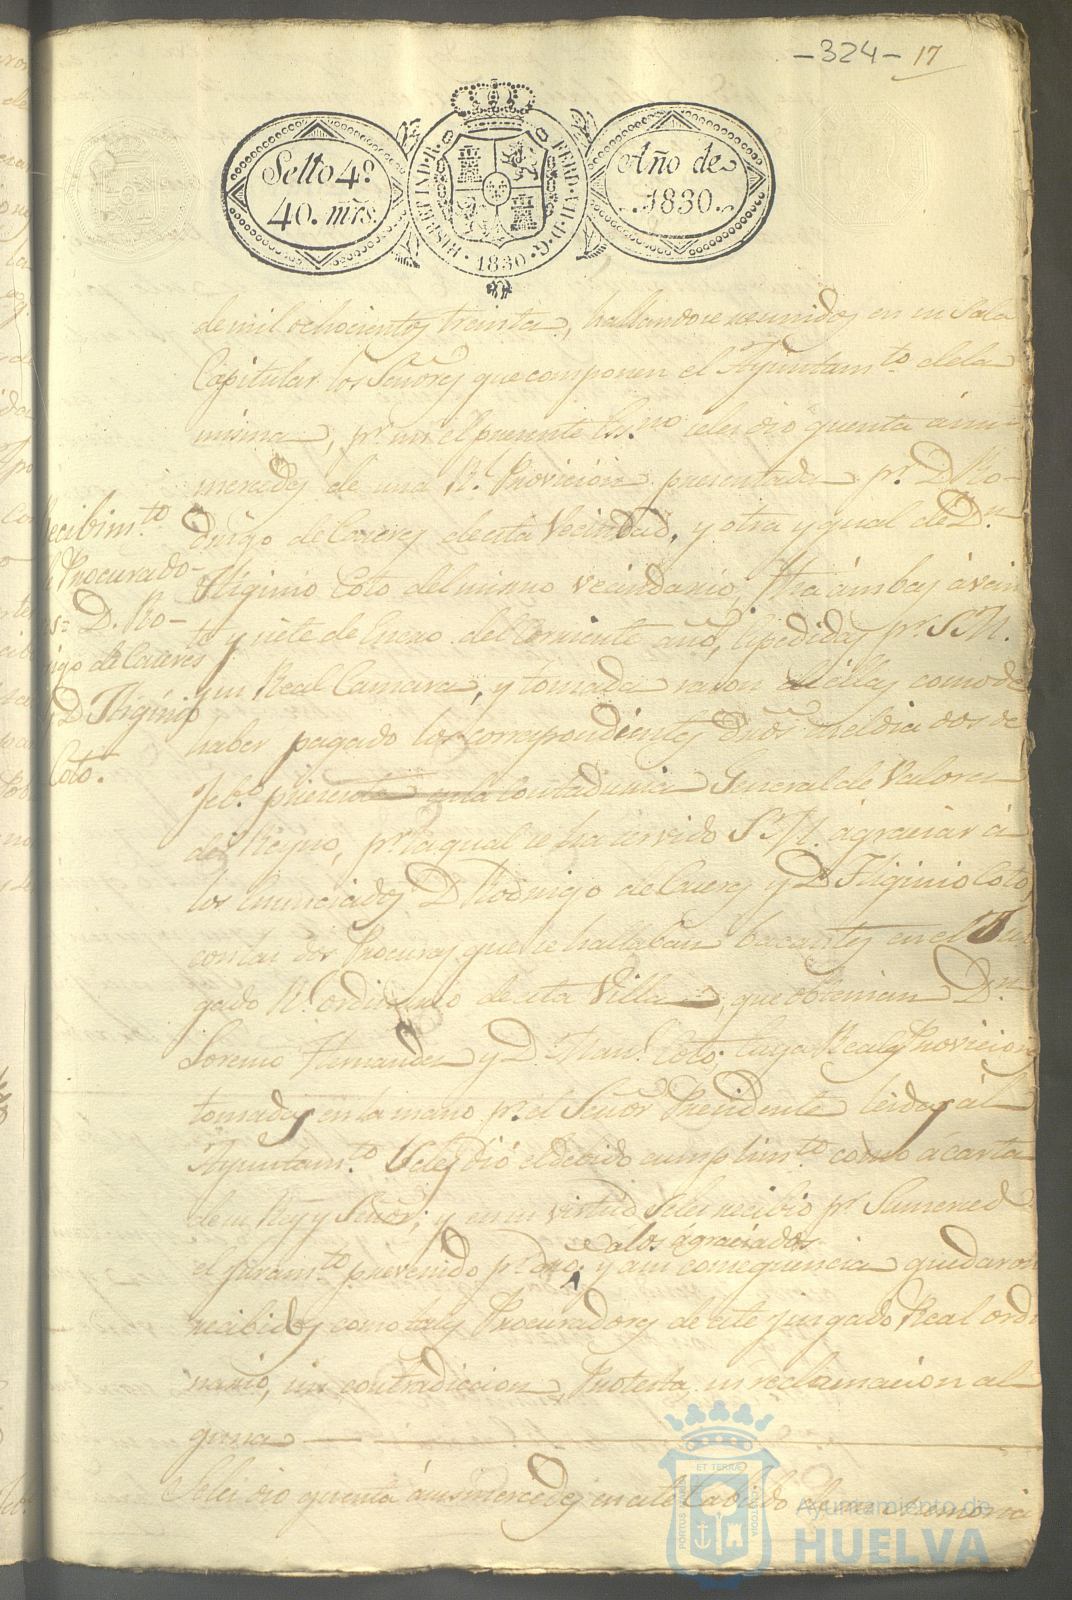 -324- 17
Sello 4º.
40. mrs.
HISP. ET IND. R. FERD. VII. D. G. 1830.
Año de
1830.
de mil ochocientos treinta, hallandose reunidos en su Sala
Capitular los Señores que componen el Ayuntam.to dela
misma, p.r mi el presente Es.no seles dio quenta á sus
mercedes de una R.l Provicion presentada p.r D Ro-
drigo de Caceres de esta Vecindad, y otra y gual de D.n
Higinio Coto del mismo vecindario, fha ámbas á vein
te y siete de Enero del Corriente año, Expedidas p.r S.M.
y su Real Camara, y tomada razon de éllas como de
haber pagado los correspondientes dros. en el dia dos de
Feb.o presente en la Contaduria General de Valores
del Reyno, p.r la qual se ha servido S.M. ágraciar á
los Enunciados D.n Rodrigo de Caceres y D. Higinio Coto,
con las dos Procuras que se hallaban bacantes en el Juz
gado R.l ordinario de esta Villa, que obtenian D.n
Lorenzo Hernandez y D. Man.l Coto: Cuyas Reales Provicion
tomadas en la mano p.r el Señor Presidente leidas ál
Ayuntam.to Seles dió el debido cumplim.to como á carta
de su Rey y Señor; y en su virtud seles recibio p.r Su merced
á los ágraciados
el juram.to prevenido p.r dro. y á su consequencia quedaron
recibidos como tales Procuradores de este juzgado Real ordi
nario, sin contradiccion, Protesta, ni reclamacion al
guna
Seles dio quenta á sus mercedes en este Cabildo de un memoria
Recibim.to
de Procurado-
res= D. Ro-
drigo de Caceres
y D Higinio
Coto.
PORTUS MARIS ET TERRÆ CUSTODIA
Ayuntamiento de
HUELVA